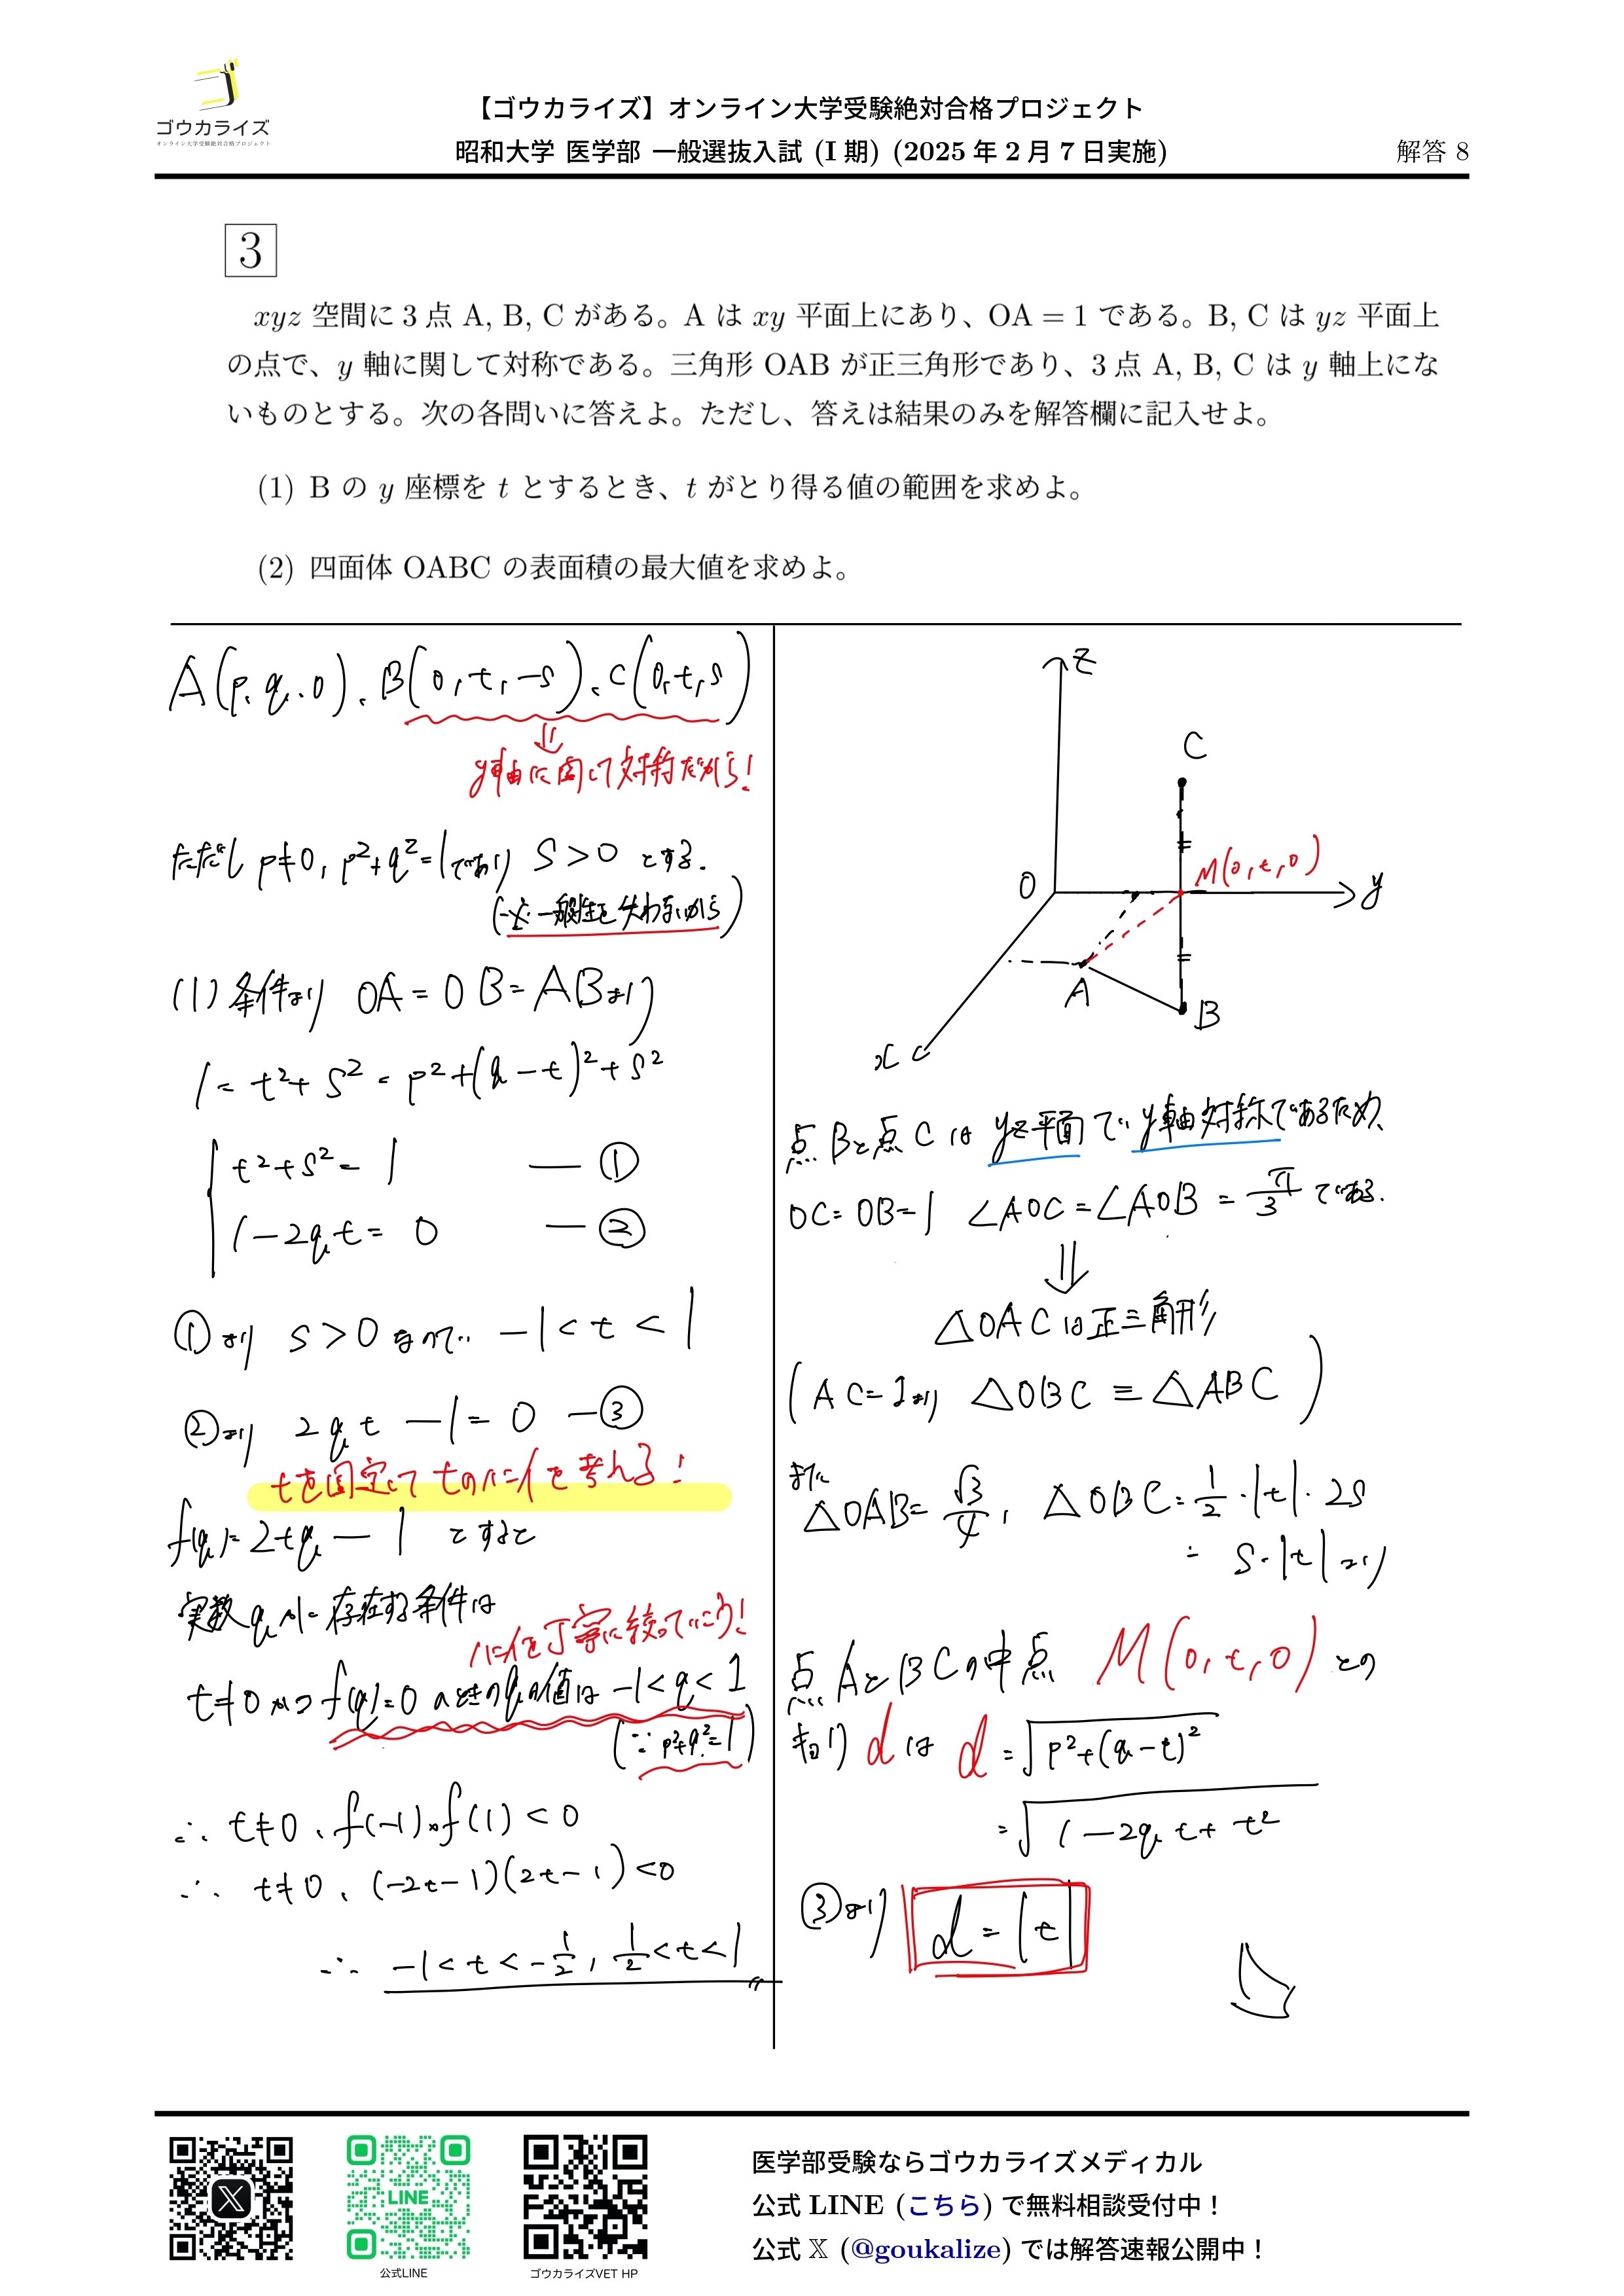 ゴウカライズ
オンライン大学受験絶対合格プロジェクト
【ゴウカライズ】オンライン大学受験絶対合格プロジェクト
昭和大学 医学部 一般選抜入試 (I 期) (2025 年 2 月 7 日実施)
解答 8
3
xyz 空間に 3 点 A, B, C がある。A は xy 平面上にあり、OA = 1 である。B, C は yz 平面上
の点で、y 軸に関して対称である。三角形 OAB が正三角形であり、3 点 A, B, C は y 軸上にな
いものとする。次の各問いに答えよ。ただし、答えは結果のみを解答欄に記入せよ。
(1) B の y 座標を t とするとき、t がとり得る値の範囲を求めよ。
(2) 四面体 OABC の表面積の最大値を求めよ。
A(p, q, 0)、B(0, t, -s)、C(0, t, s)
⇓
y軸に関して対称だから!
ただし p≠0, p²+q²=1であり s>0 とする.
(∵一般性を失わないから)
(1) 条件より OA=OB=ABより
1=t²+s²=p²+(q-t)²+s²
t²+s²=1 ―①
1-2qt=0 ―②
①より s>0 なので -1<t<1
②より 2qt-1=0 ―③
tを固定して tのハンイを考える!
f(q)=2tq-1 とすると
実数qが存在する条件は
ハンイを丁寧に絞っていこう!
t≠0 かつ f(q)=0 のときのqの値は -1<q<1
(∵p²+q²=1)
∴ t≠0、f(-1)・f(1)<0
∴ t≠0、(-2t-1)(2t-1)<0
∴ -1<t<-1/2, 1/2<t<1
z
C
M(0,t,0)
O
y
A
B
x
点Bと点Cは yz平面で y軸対称であるため、
OC=OB=1 ∠AOC=∠AOB=π/3 である.
⇓
△OACは正三角形
(AC=1より △OBC≡△ABC)
また
△OAB=√3/4, △OBC=1/2・|t|・2s
=s・|t| より
点AとBCの中点 M(0,t,0) との
キョリ d は d=√p²+(q-t)²
=√1-2qt+t²
③より d=|t|
LINE
公式LINE
ゴウカライズVET HP
医学部受験ならゴウカライズメディカル
公式 LINE (こちら) で無料相談受付中！
公式 𝕏 (@goukalize) では解答速報公開中！